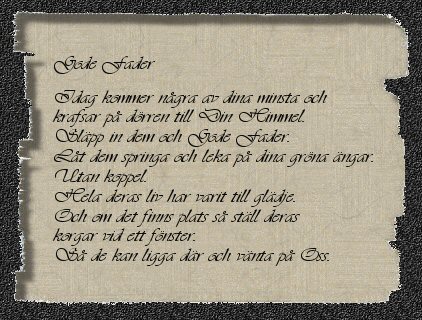 Gode Fader
Idag kommer några av dina minsta och
krafsar på dörren till Din Himmel.
Släpp in dem och Gode Fader.
Låt dem springa och leka på dina gröna ängar.
Utan koppel.
Hela deras liv har varit till glädje.
Och om det finns plats så ställ deras
korgar vid ett fönster.
Så de kan ligga där och vänta på Oss.